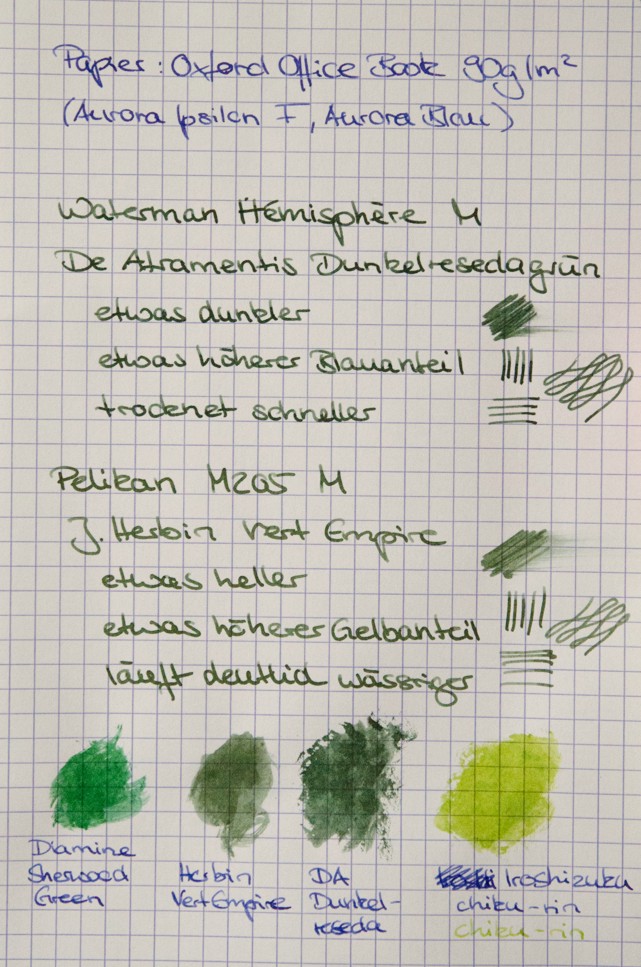 Papier: Oxford Office Book 90g/m²
(Aurora Ipsilon F, Aurora Blau)
Waterman Hémisphère M
De Atramentis Dunkelresedagrün
etwas dunkler
etwas höherer Blauanteil
trocknet schneller
Pelikan M205 M
J. Herbin Vert Empire
etwas heller
etwas höherer Gelbanteil
läuft deutlich wässriger
Diamine
Sherwood
Green
Herbin
Vert Empire
DA
Dunkel-
reseda
Iroshizuku
chiku-rin
chiku-rin